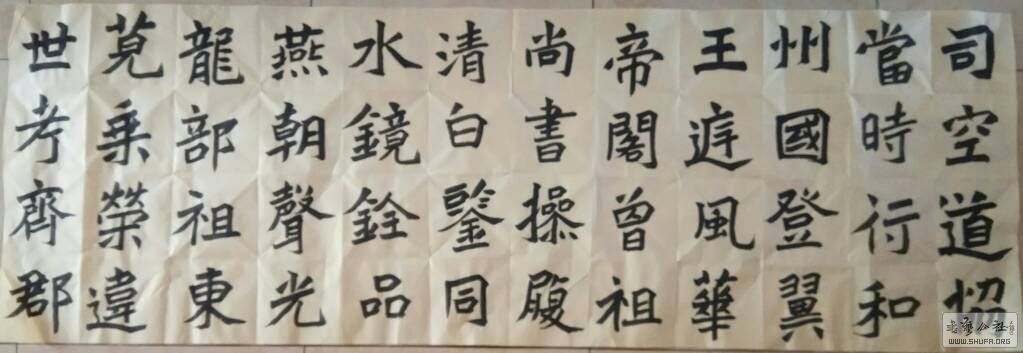 司空道
當時行和
州國登翼
王庭風華
帝閣曾祖
尚書操履
清白鑒同
水鏡銓品
燕朝聲光
龍部祖東
莧乘榮違
世考齊郡
WWW.SHUFA.ORG